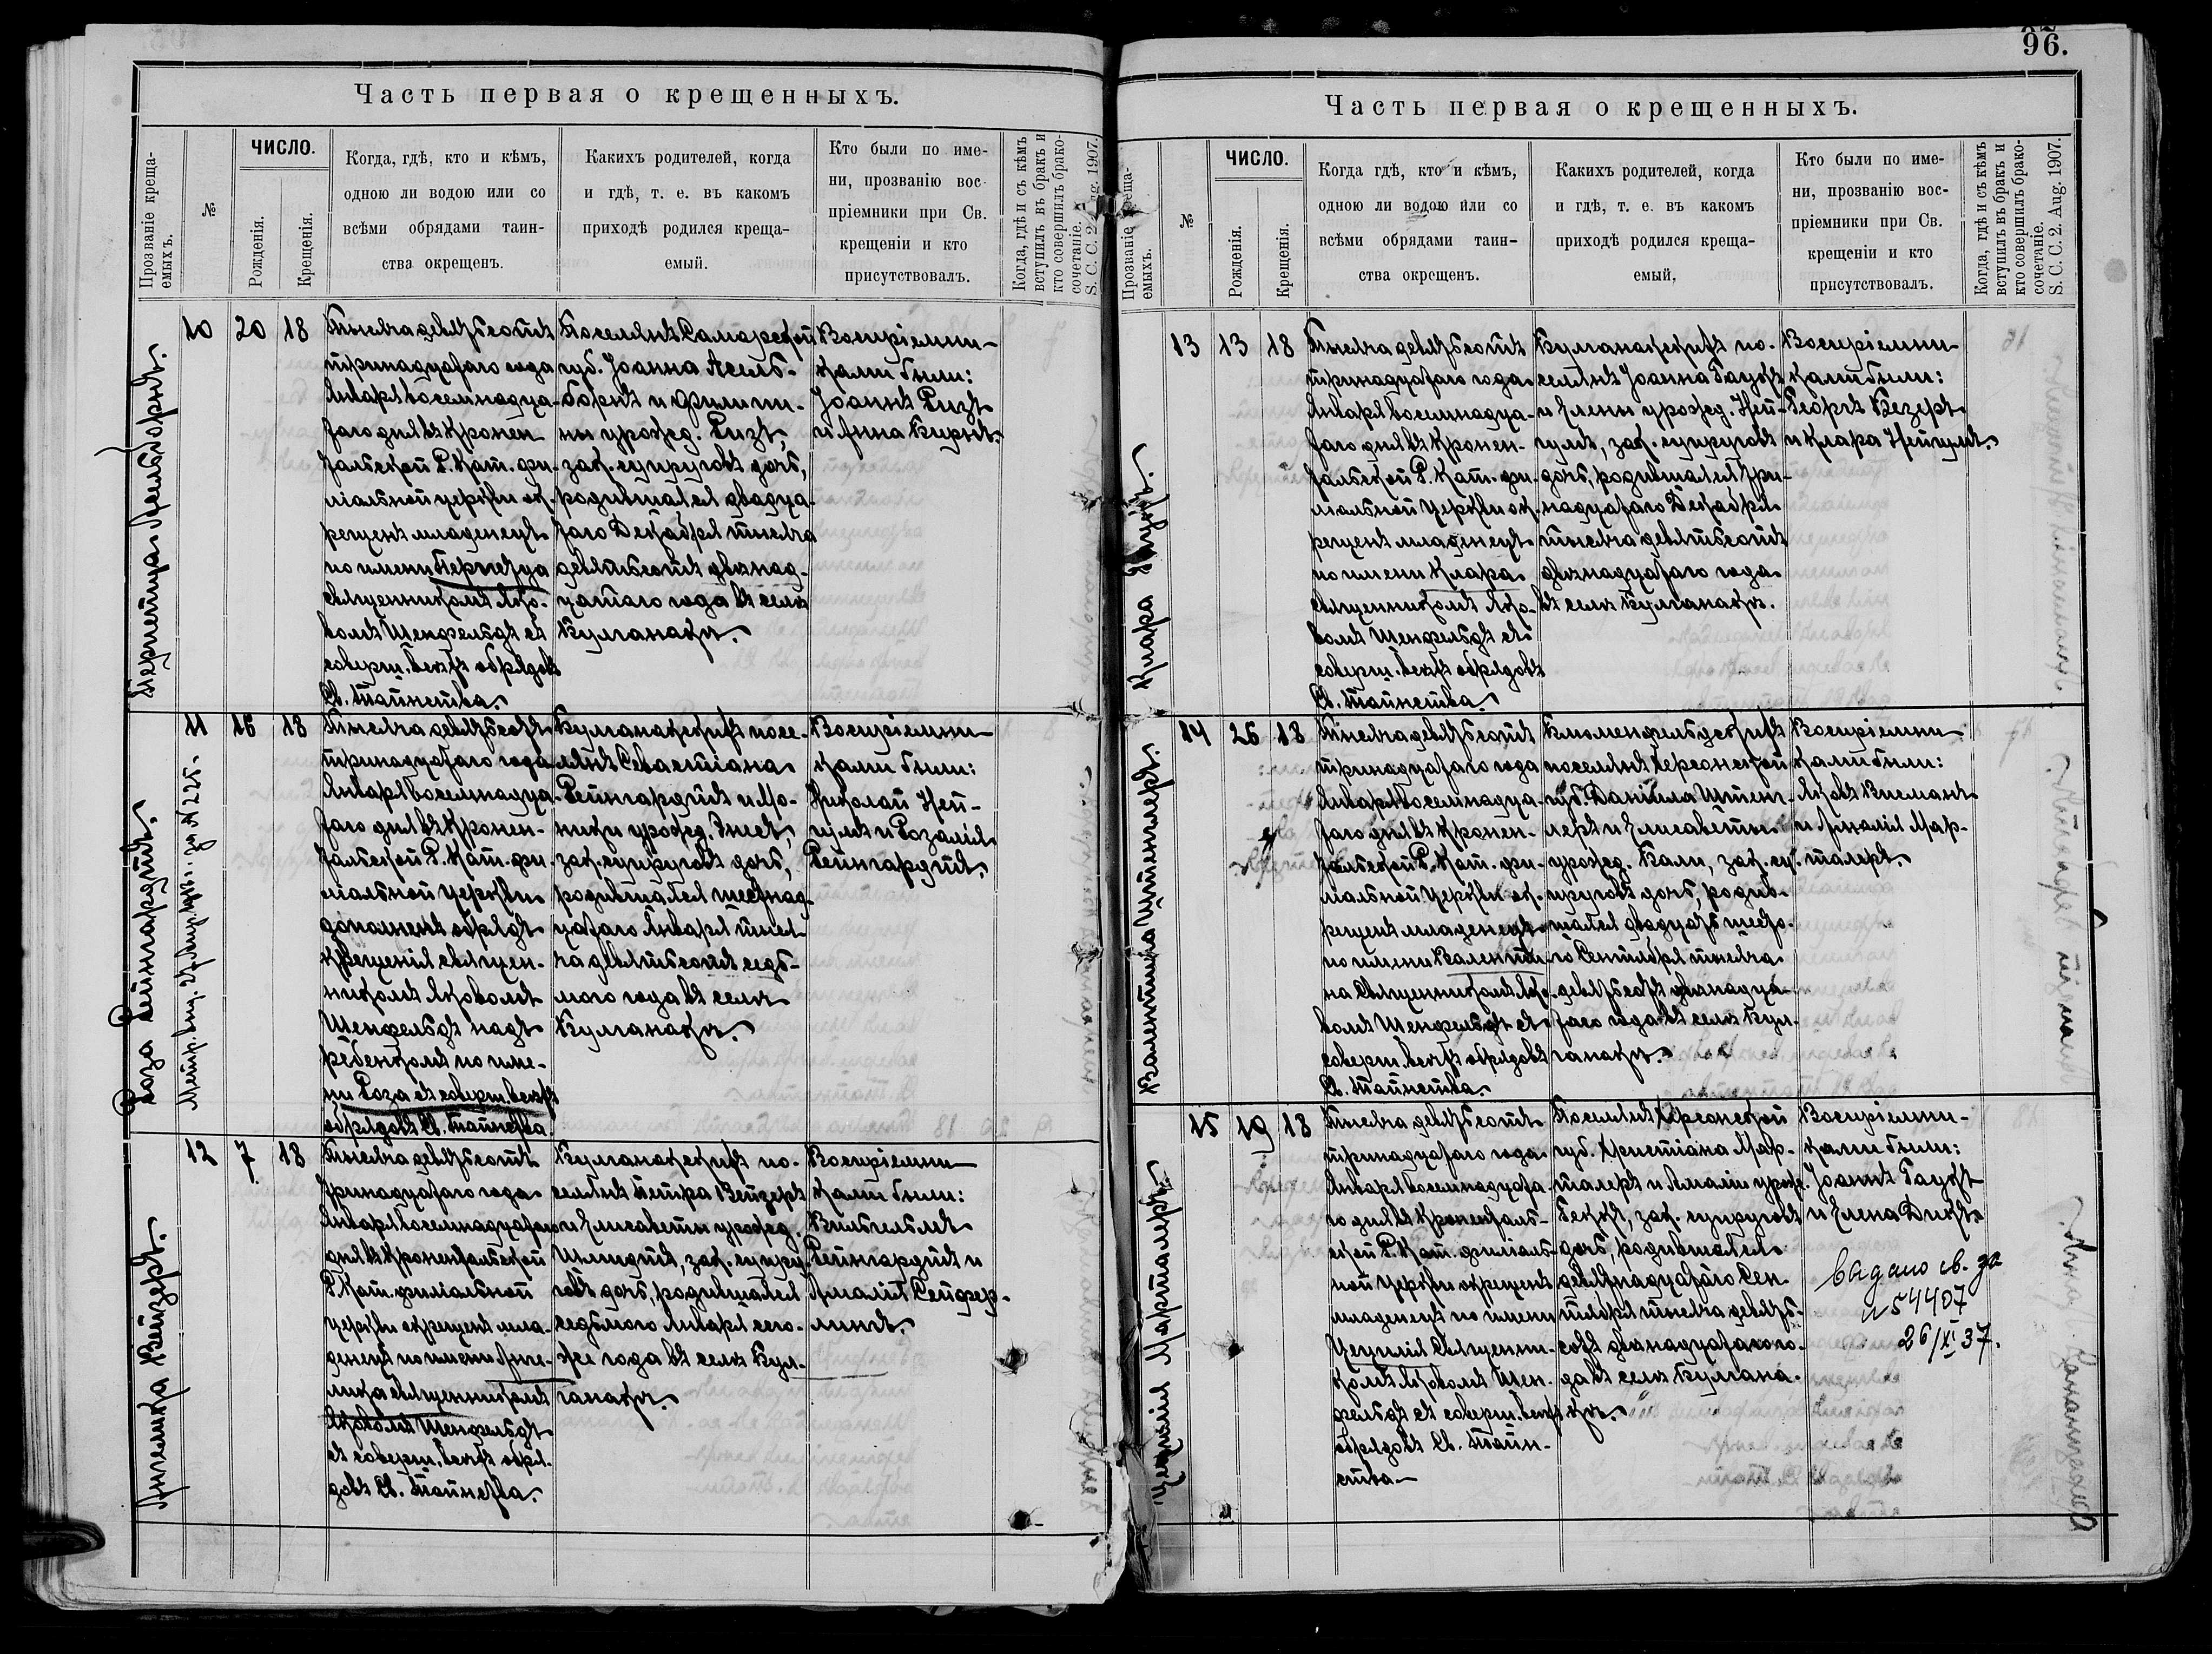 96.
Часть первая о крещенныхъ.
Прозваніе креща-
емыхъ.
№
ЧИСЛО.
Рожденія.
Крещенія.
Когда, гдѣ, кто и кѣмъ,
одною ли водою или со
всѣми обрядами таин-
ства окрещенъ.
Какихъ родителей, когда
и гдѣ, т. е. въ какомъ
приходѣ родился креща-
емый.
Кто были по име-
ни, прозванію вос-
пріемники при Св.
крещеніи и кто
присутствовалъ.
Когда, гдѣ и съ кѣмъ
вступилъ въ бракъ и
кто совершилъ брако-
сочетаніе.
S. C. C. 2. Aug. 1907.
10 20 18
Тысяча девятьсотъ
тринадцатаго года
Января восемнадца-
таго дня въ Кронен-
тальской Р. Кат. фи-
ліальной церкви ок-
рещенъ младенецъ
по имени
священникомъ Яко-
вомъ Шенфельдъ съ
соверш. всѣхъ обрядовъ
Св. Таинства.
Поселянъ Самарской
губ. Іоанна Асель-
борнъ и Филипи-
ны урожд. Ризъ,
зак. супруговъ дочь,
родившаяся двадца-
таго Декабря тысяча
девятьсотъ двѣнад-
цатаго года въ селѣ
Булганакѣ.
Воспріемни-
ками были:
Іоаннъ Ризъ
и Анна Кирнъ.
Роза Рейнгардтъ.
11 16 18
Тысяча девятьсотъ
тринадцатаго года
Января восемнадца-
таго дня въ Кронен-
тальской Р. Кат. фи-
ліальной церкви
дополненъ обрядъ
крещенія священ-
никомъ Яковомъ
Шенфельдъ надъ
ребенкомъ по име-
ни Роза съ соверш. всѣхъ
обрядовъ Св. Таинства.
Булганакскихъ посе-
лянъ Севастіана
Рейнгардтъ и Мо-
ники урожд.
зак. супруговъ дочь,
родившаяся шестнад-
цатаго Января тыся-
ча девятьсотъ седь-
мого года въ селѣ
Булганакѣ.
Воспріемни-
ками были:
Николай Ней-
гумъ и Розалія
Рейнгардтъ.
Ангелика Вейцертъ.
12 7 18
Тысяча девятьсотъ
тринадцатаго года
Января восемнадцатаго
дня въ Кронентальской
Р. Кат. филіальной
церкви окрещенъ мла-
денецъ по имени Анге-
лика священникомъ
Яковомъ Шенфельдъ
съ соверш. всѣхъ обря-
довъ Св. Таинства.
Булганакскихъ по-
селянъ Петра Вейцертъ
и Елисаветы урожд.
Шмидтъ, зак. супру-
говъ дочь, родившаяся
седьмого Января сего-
же года въ селѣ Бул-
ганакѣ.
Воспріемни-
ками были:
Вильгельмъ
Рейнгардтъ и
Амалія Сейфер-
лингъ.
Часть первая о крещенныхъ.
Прозваніе креща-
емыхъ.
№
ЧИСЛО.
Рожденія.
Крещенія.
Когда гдѣ, кто и кѣмъ,
одною ли водою или со
всѣми обрядами таин-
ства окрещенъ.
Какихъ родителей, когда
и гдѣ, т. е. въ какомъ
приходѣ родился креща-
емый,
Кто были по име-
ни, прозванію вос-
пріемники при Св.
крещеніи и кто
присутствовалъ.
Когда, гдѣ и съ кѣмъ
вступилъ въ бракъ и
кто совершилъ брако-
сочетаніе.
S. C. C. 2. Aug. 1907.
Клара Гаукъ.
13 13 18
Тысяча девятьсотъ
тринадцатаго года
Января восемнадца-
таго дня въ Кронен-
тальской Р. Кат. фи-
ліальной церкви ок-
рещенъ младенецъ
по имени Клара
священникомъ Яко-
вомъ Шенфельдъ съ
соверш. всѣхъ обрядовъ
Св. Таинства.
Булганакскихъ по-
селянъ Іоанна Гаукъ
и Елены урожд. Ней-
гумъ, зак. супруговъ
дочь, родившаяся три-
надцатаго Декабря
тысяча девятьсотъ
двѣнадцатаго года
въ селѣ Булганакѣ.
Воспріемни-
ками были:
Георгъ Безертъ
и Клара Нейгумъ.
Валентина Штенглеръ.
14 26 18
Тысяча девятьсотъ
тринадцатаго года
Января восемнадца-
таго дня въ Кронен-
тальской Р. Кат. фи-
ліальной церкви ок-
рещенъ младенецъ
по имени Валенти-
на священникомъ Яко-
вомъ Шенфельдъ съ
соверш. всѣхъ обрядовъ
Св. Таинства.
поселянъ Херсонской
губ. Даніила Штенг-
леръ и Елисаветы
урожд. зак. су-
пруговъ дочь, родив-
шаяся двадцать шесто-
го Сентября тысяча
девятьсотъ двѣнадца-
таго года въ селѣ Бул-
ганакѣ.
Воспріемни-
ками были:
Яковъ Висманъ
и Амалія Мар-
талеръ.
Цецилія Марталеръ.
15 19 18
Тысяча девятьсотъ
тринадцатаго года
Января восемнадцата-
го дня въ Кроненталь-
ской Р. Кат. филіаль-
ной церкви окрещенъ
младенецъ по имени
Цецилія священни-
комъ Яковомъ Шен-
фельдъ съ соверш. всѣхъ
обрядовъ Св. Таин-
ства
Поселянъ Херсонской
губ. Христіана Мар-
талеръ и Амаліи урожд.
зак. супруговъ
дочь, родившаяся
девятнадцатаго Сен-
тября тысяча девять-
сотъ двѣнадцатаго го-
да въ селѣ Булгана-
кѣ.
Воспріемни-
ками были:
Іоаннъ Гаукъ
и Елена Диктъ
Выдано св. за
№ 54407
26/XI 37.